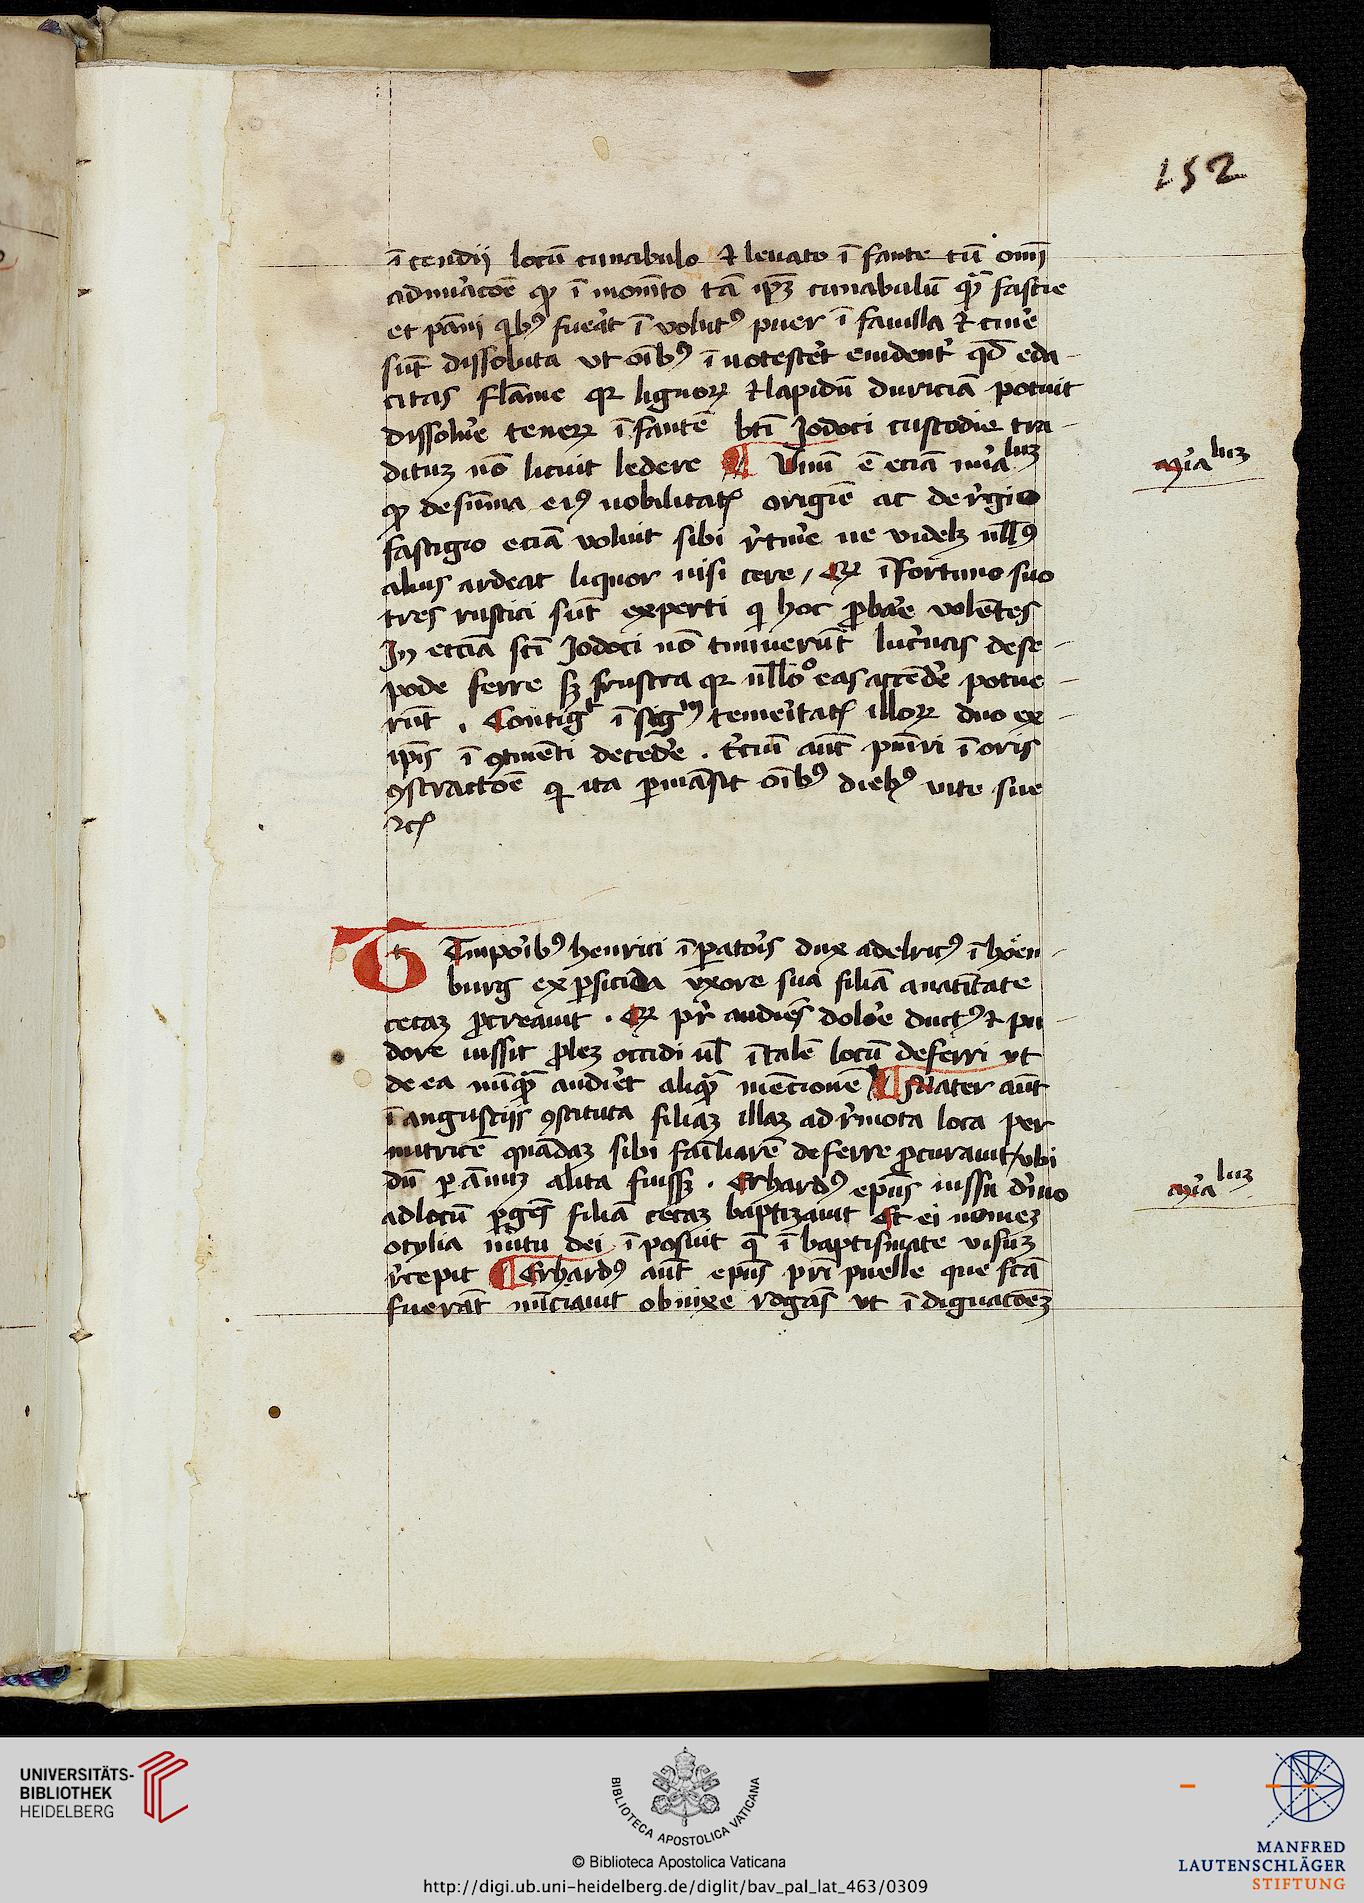 152
īcendij locū cunabulo ⁊ leuato īfante cū om̄i
admiracōe ꝙ ī momēto tā ip̄ꝫ cunabulū quā fascie
et pāni qͥbꝰ fuerat īuolutꝰ puer ī fauilla ⁊ cinere
sūt dissoluta vt oībꝰ īnotesceret euident̉ qd̄ eda-
citas flāme que lignoꝝ ⁊ lapidū duriciā potuit
dissolue̾ teneꝝ īfantē bt̄i Jodoci custodie tra-
dituꝫ nō licuit ledere ¶ Vnū ē eciā mira^luꝫ
mira^luꝫ
ꝙ de sūma eiꝰ nobilitatꝭ origīe ac de regio
fastigio eciā voluit sibi retinere ne videlꝫ nullꝰ
alius ardeat liquor nisi cere / Qꝫ īfortunio suo
tres rustici sūt experti qͥ hoc ꝓbare volētes
In eccīa scī Jodoci nō timuerūt lucernis de se-
pode ferre sꝫ frustra qꝛ nullo° eas accendere potue-
rūt . Contigͭ ī sigᵐ temeritatꝭ illoꝝ duo ex
ip̄is ī ꝯtinēti decedere . t̾ciū aūt puniri ī oris
ꝯtractōe qͥ ita ꝑmāsit oībꝰ diebꝰ vite sue
⁊cꝭ
Tempoībꝰ henrici īꝑatoris dux adelricꝰ ī hoen-
burg ex ꝑsicida vxore sua filiā a natītate
cecaꝫ ꝓcreauit . Qꝫ pr̄ audiēs dolore ductꝰ ⁊ pu-
dore iussit ꝓleꝫ occidi ul̄ ī talē locū deferri vt
de ea nūquā audiret aliquā mencionē ¶ Mater aūt
ī angustijs ꝯstituta filiaꝫ illaꝫ ad remota loca per
nutricē quādaꝫ sibi familiarē deferre ꝓcurauit / vbi
dū ꝑ annuꝫ alita fuissꝫ . Erhardꝰ ep̄us iussu diuīo
mira^luꝫ
ad locū ꝑgēs filiā cecaꝫ baptizauit Et ei nomeꝫ
otylia nutu dei īposuit q̄ ī baptismate visuꝫ
recepit ¶ Erhardꝰ aūt ep̄us pr̄i puelle que fcā
fuerāt nūciauit obnixe rogās vt īdignacōeꝫ
UNIVERSITÄTS-
BIBLIOTHEK
HEIDELBERG
BIBLIOTECA APOSTOLICA VATICANA
© Biblioteca Apostolica Vaticana
http://digi.ub.uni-heidelberg.de/diglit/bav_pal_lat_463/0309
MANFRED
LAUTENSCHLÄGER
STIFTUNG